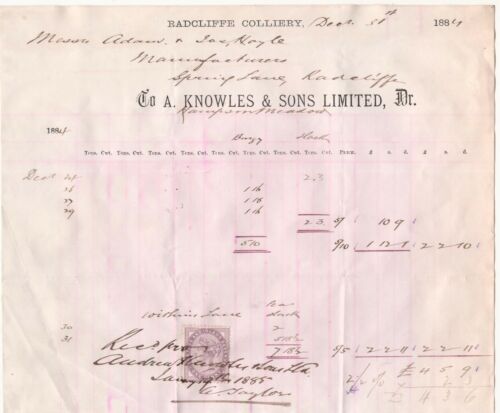 RADCLIFFE COLLIERY, Decr 31st 1884
Messrs Adams & Jas Hoyle
Manufacturers
Spring Lane, Radcliffe
To A. KNOWLES & SONS LIMITED, Dr.
Hampson Meadow
1884 Slack
Tons. Cwt. Tons. Cwt. Tons. Cwt. Tons. Cwt. Tons. Cwt. Tons. Cwt. Tons. Cwt. PRICE. £ s. d. £ s. d.
Decr 24 2.3
26 1 16
27 1 18
29 1 16
2 3 5/ 10 9
5 10 5/10 1 12 1 2 2 10
Withins Lane Pea
Slack
30 2
31 5 18½
7 18½ 5/5 2 2 11 2 2 11
Recd pro £ 4 5 9
Andrew Knowles & Sons Ltd 2 3
Jany 19th 1885 4 3 6
A Taylor